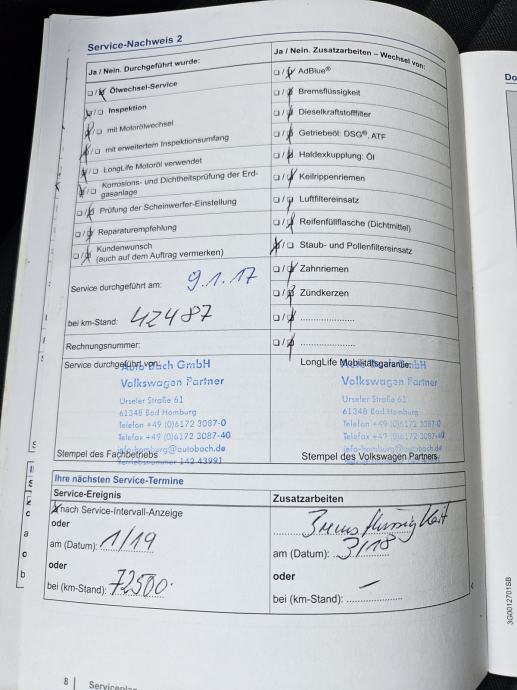 Service-Nachweis 2
Ja / Nein. Durchgeführt wurde:
Ölwechsel-Service
Inspektion
mit Motorölwechsel
mit erweitertem Inspektionsumfang
LongLife Motoröl verwendet
Korrosions- und Dichtheitsprüfung der Erd-
gasanlage
Prüfung der Scheinwerfer-Einstellung
Reparaturempfehlung
Kundenwunsch
(auch auf dem Auftrag vermerken)
Service durchgeführt am: 9.1.17
bei km-Stand: 42487
Rechnungsnummer:
Service durchgeführt von:
Auto Bach GmbH
Volkswagen Partner
Urseler Straße 61
61348 Bad Homburg
Telefon +49 (0)6172 3087-0
Telefax +49 (0)6172 3087-40
info-homburg@autobach.de
Betriebsnummer 142 43991
Stempel des Fachbetriebs
Ja / Nein. Zusatzarbeiten – Wechsel von:
AdBlue®
Bremsflüssigkeit
Dieselkraftstofffilter
Getriebeöl: DSG®, ATF
Haldexkupplung: Öl
Keilrippenriemen
Luftfiltereinsatz
Reifenfüllflasche (Dichtmittel)
Staub- und Pollenfiltereinsatz
Zahnriemen
Zündkerzen
LongLife Mobilitätsgarantie:
Auto Bach GmbH
Volkswagen Partner
Urseler Straße 61
61348 Bad Homburg
Telefon +49 (0)6172 3087-0
Telefax +49 (0)6172 3087-40
info-homburg@autobach.de
Stempel des Volkswagen Partners
Ihre nächsten Service-Termine
Service-Ereignis
nach Service-Intervall-Anzeige
oder
am (Datum): 1/19
oder
bei (km-Stand): 72500.
Zusatzarbeiten
Bremsflüssigkeit
am (Datum): 3/18
oder
bei (km-Stand): –
8 | Serviceplan
Do
3G0012701SB